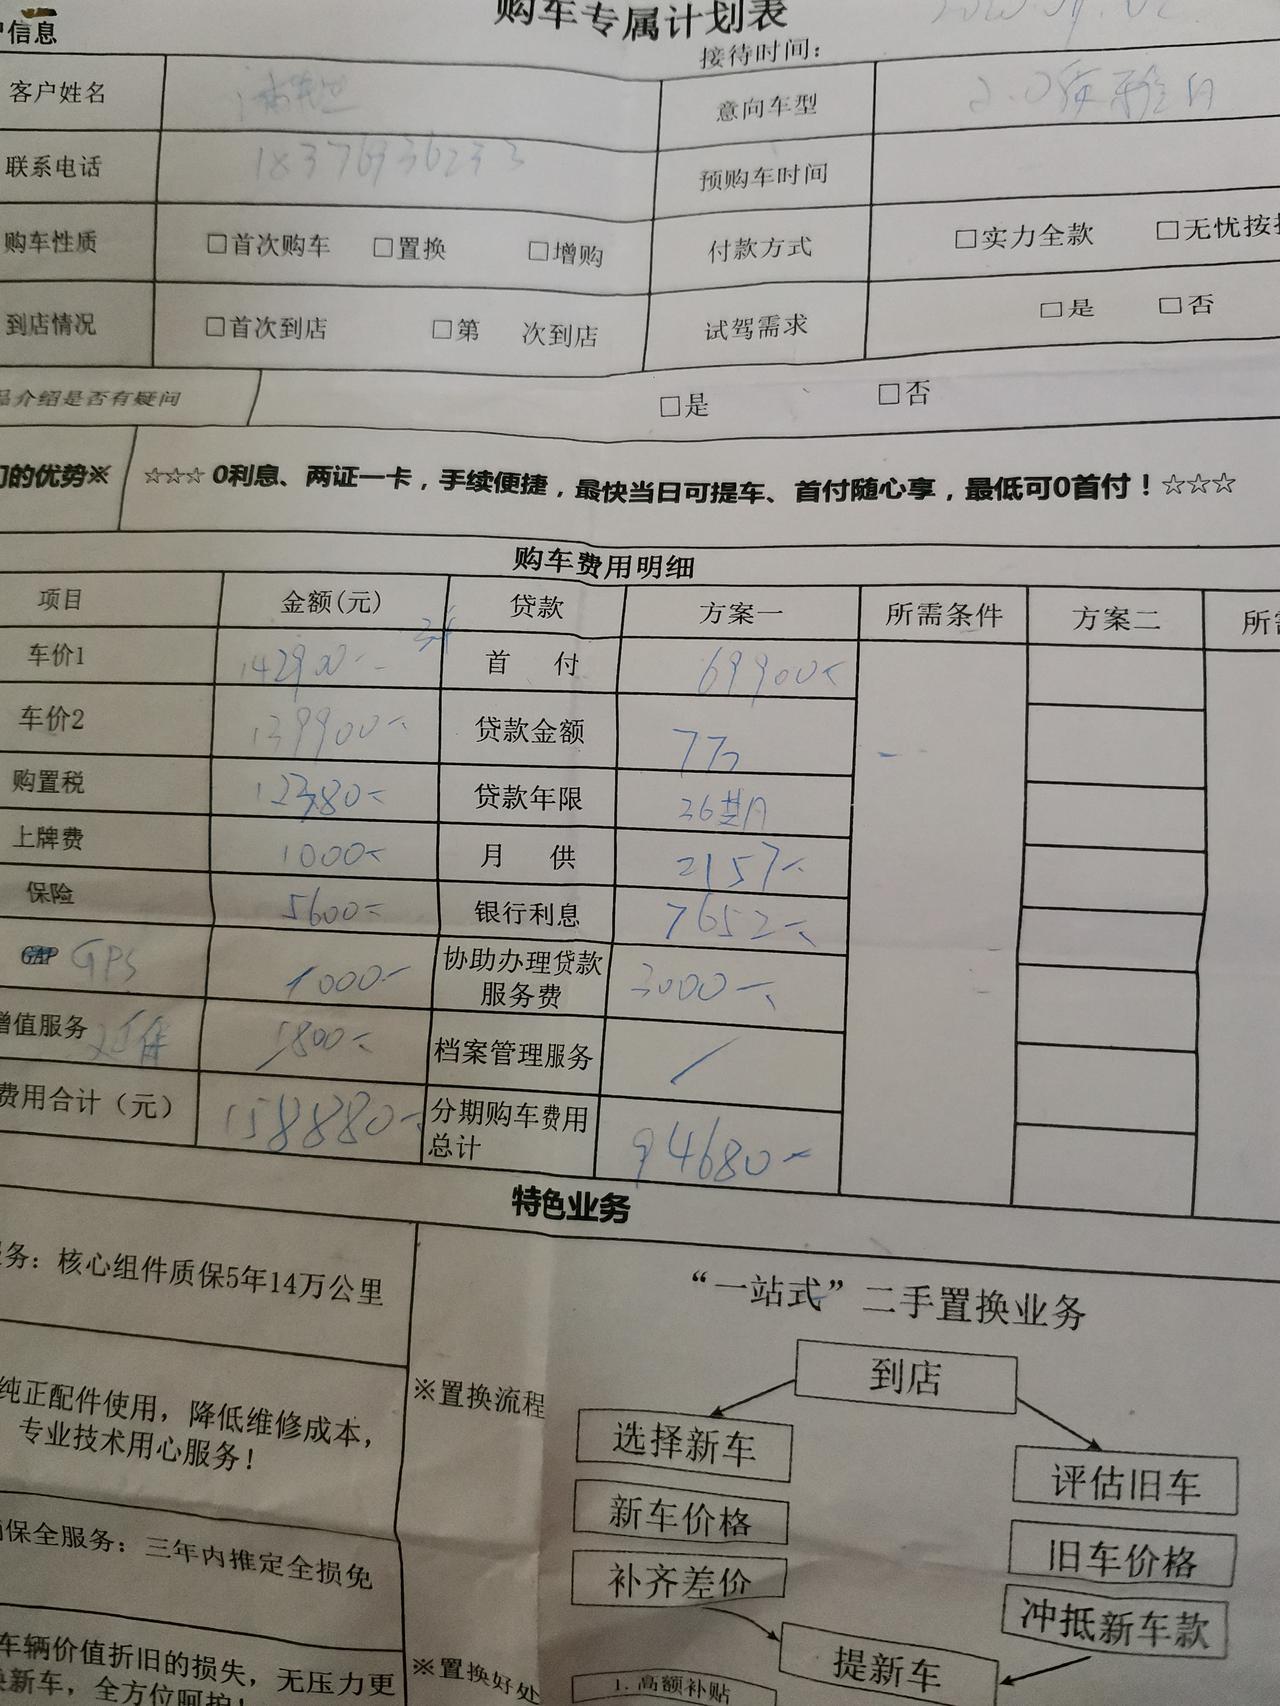 购车专属计划表
户信息
接待时间：
客户姓名
意向车型 2.0
联系电话 18376936233
预购车时间
购车性质 □首次购车 □置换 □增购 付款方式 □实力全款 □无忧按揭
到店情况 □首次到店 □第 次到店 试驾需求 □是 □否
品介绍是否有疑问 □是 □否
们的优势※ ☆☆☆ 0利息、两证一卡，手续便捷，最快当日可提车、首付随心享，最低可0首付！☆☆☆
购车费用明细
项目 金额(元) 贷款 方案一 所需条件 方案二 所需
车价1 142900 首 付 69900
车价2 139900 贷款金额 7万
购置税 12380 贷款年限 36期
上牌费 1000 月 供 2157
保险 5600 银行利息 7652
GAP GPS 1000 协助办理贷款服务费 3000
增值服务 延保 1800 档案管理服务 /
费用合计（元） 158880 分期购车费用总计 94680
特色业务
务：核心组件质保5年14万公里
“一站式”二手置换业务
到店
纯正配件使用，降低维修成本，
专业技术用心服务！
※置换流程
选择新车
评估旧车
新车价格
旧车价格
补齐差价
冲抵新车款
提新车
保全服务：三年内推定全损免
车辆价值折旧的损失，无压力更
换新车，全方位呵护！
※置换好处
1. 高额补贴